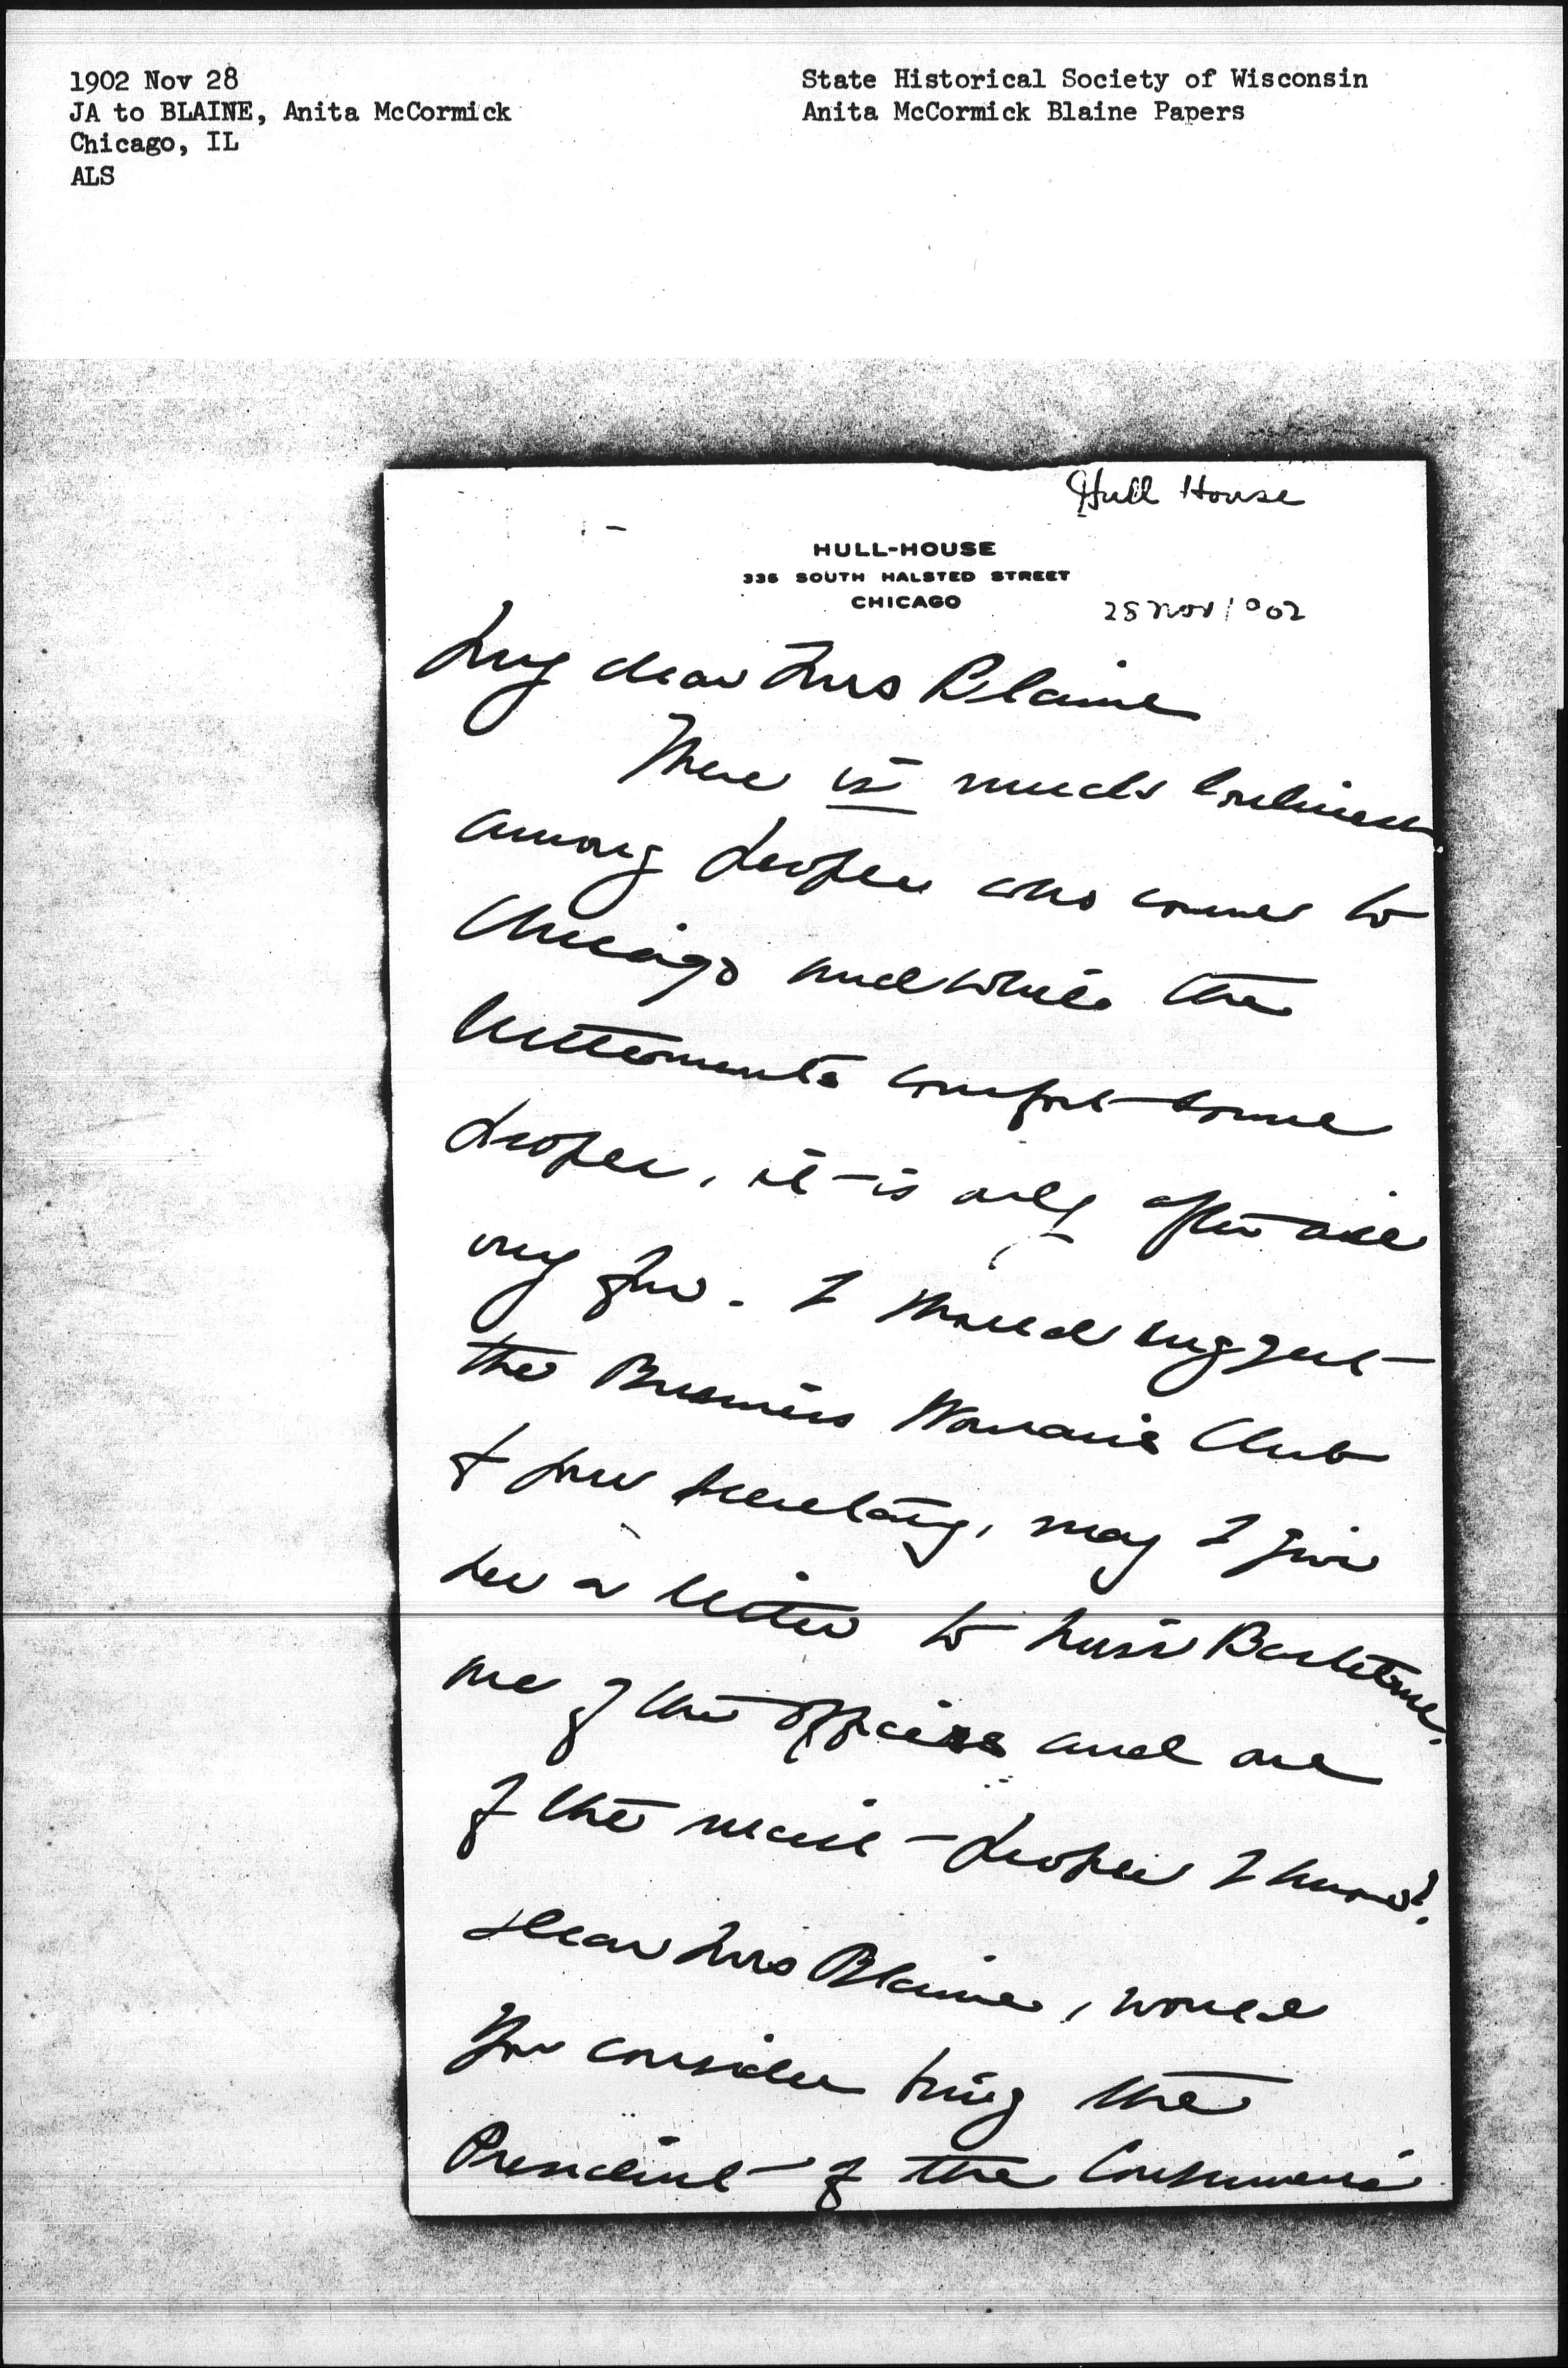 1902 Nov 28
JA to BLAINE, Anita McCormick
Chicago, IL
ALS
State Historical Society of Wisconsin
Anita McCormick Blaine Papers
Hull House
HULL-HOUSE
335 SOUTH HALSTED STREET
CHICAGO
28 Nov 1902
My dear Mrs Blaine
There is much loneliness
among people who come to
Chicago and while the
settlements comfort some
people, it is only after all
very few. I should suggest
the Business Woman's Club
to your secretary, may I give
her a letter to Miss
one of the officers and one
of the nicest people I know?
Dear Mrs Blaine, would
you consider being the
President of the Consumers'